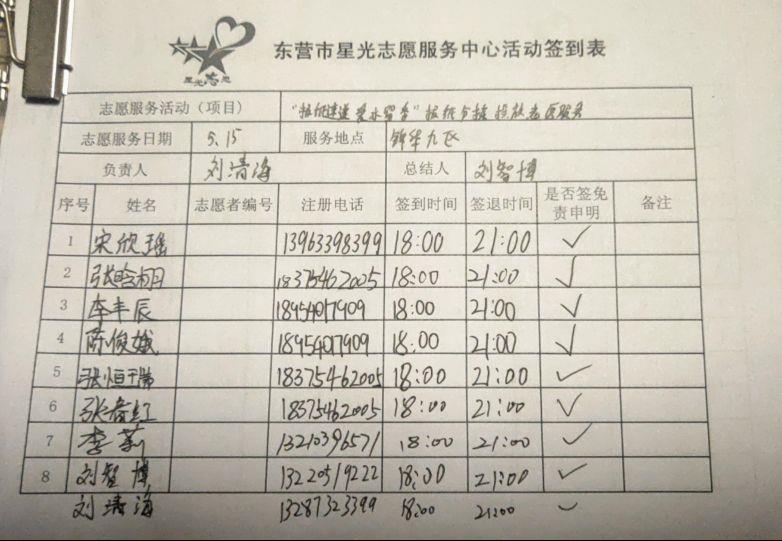 星光志愿
东营市星光志愿服务中心活动签到表
志愿服务活动（项目） "报纸速递 爱永留香"报纸分拣投放志愿服务
志愿服务日期 5.15 服务地点 锦华九区
负责人 刘清海 总结人 刘智博
序号 姓名 志愿者编号 注册电话 签到时间 签退时间 是否签免责申明 备注
1 宋欣瑶 13963398399 18:00 21:00 ✓
2 张晗栩 18375462005 18:00 21:00 ✓
3 李丰辰 18954017909 18:00 21:00 ✓
4 陈俊娥 18954017909 18:00 21:00 ✓
5 张恒瑞 18375462005 18:00 21:00 ✓
6 张春红 18375462005 18:00 21:00 ✓
7 李莉 13210396571 18:00 21:00 ✓
8 刘智博 13220519222 18:00 21:00 ✓
刘清海 13287323399 18:00 21:00 ✓